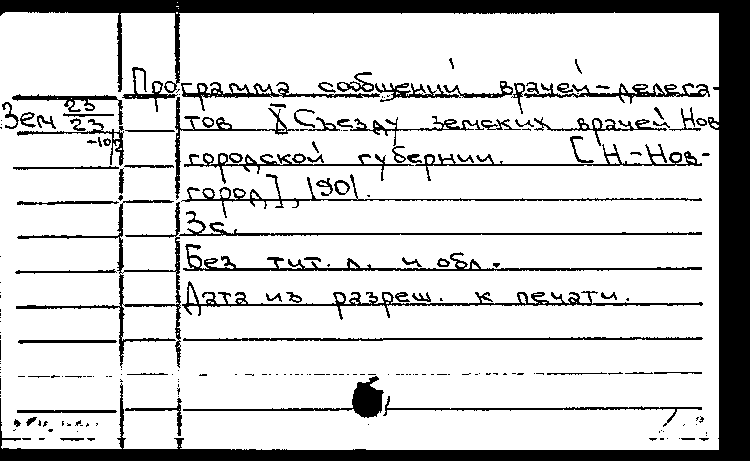 Программа сообщений врачей-делега-
Зем 23/23 -10/2
тов X Съезду земских врачей Нов
городской губернии. [Н.-Нов-
город], 1901.
3с.
Без тит. л. и обл.
Дата из разреш. к печати.